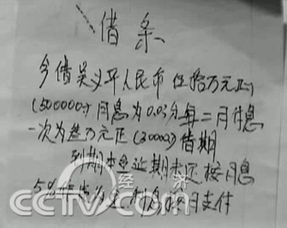 借条
今借吴义平人民币伍拾万元正
(500000) 月息为0.03分每二月付息
一次为叁万元正(30000) 借期
到期本 逾期未还按月息
5% 为 付息按月支付
CCTV.com